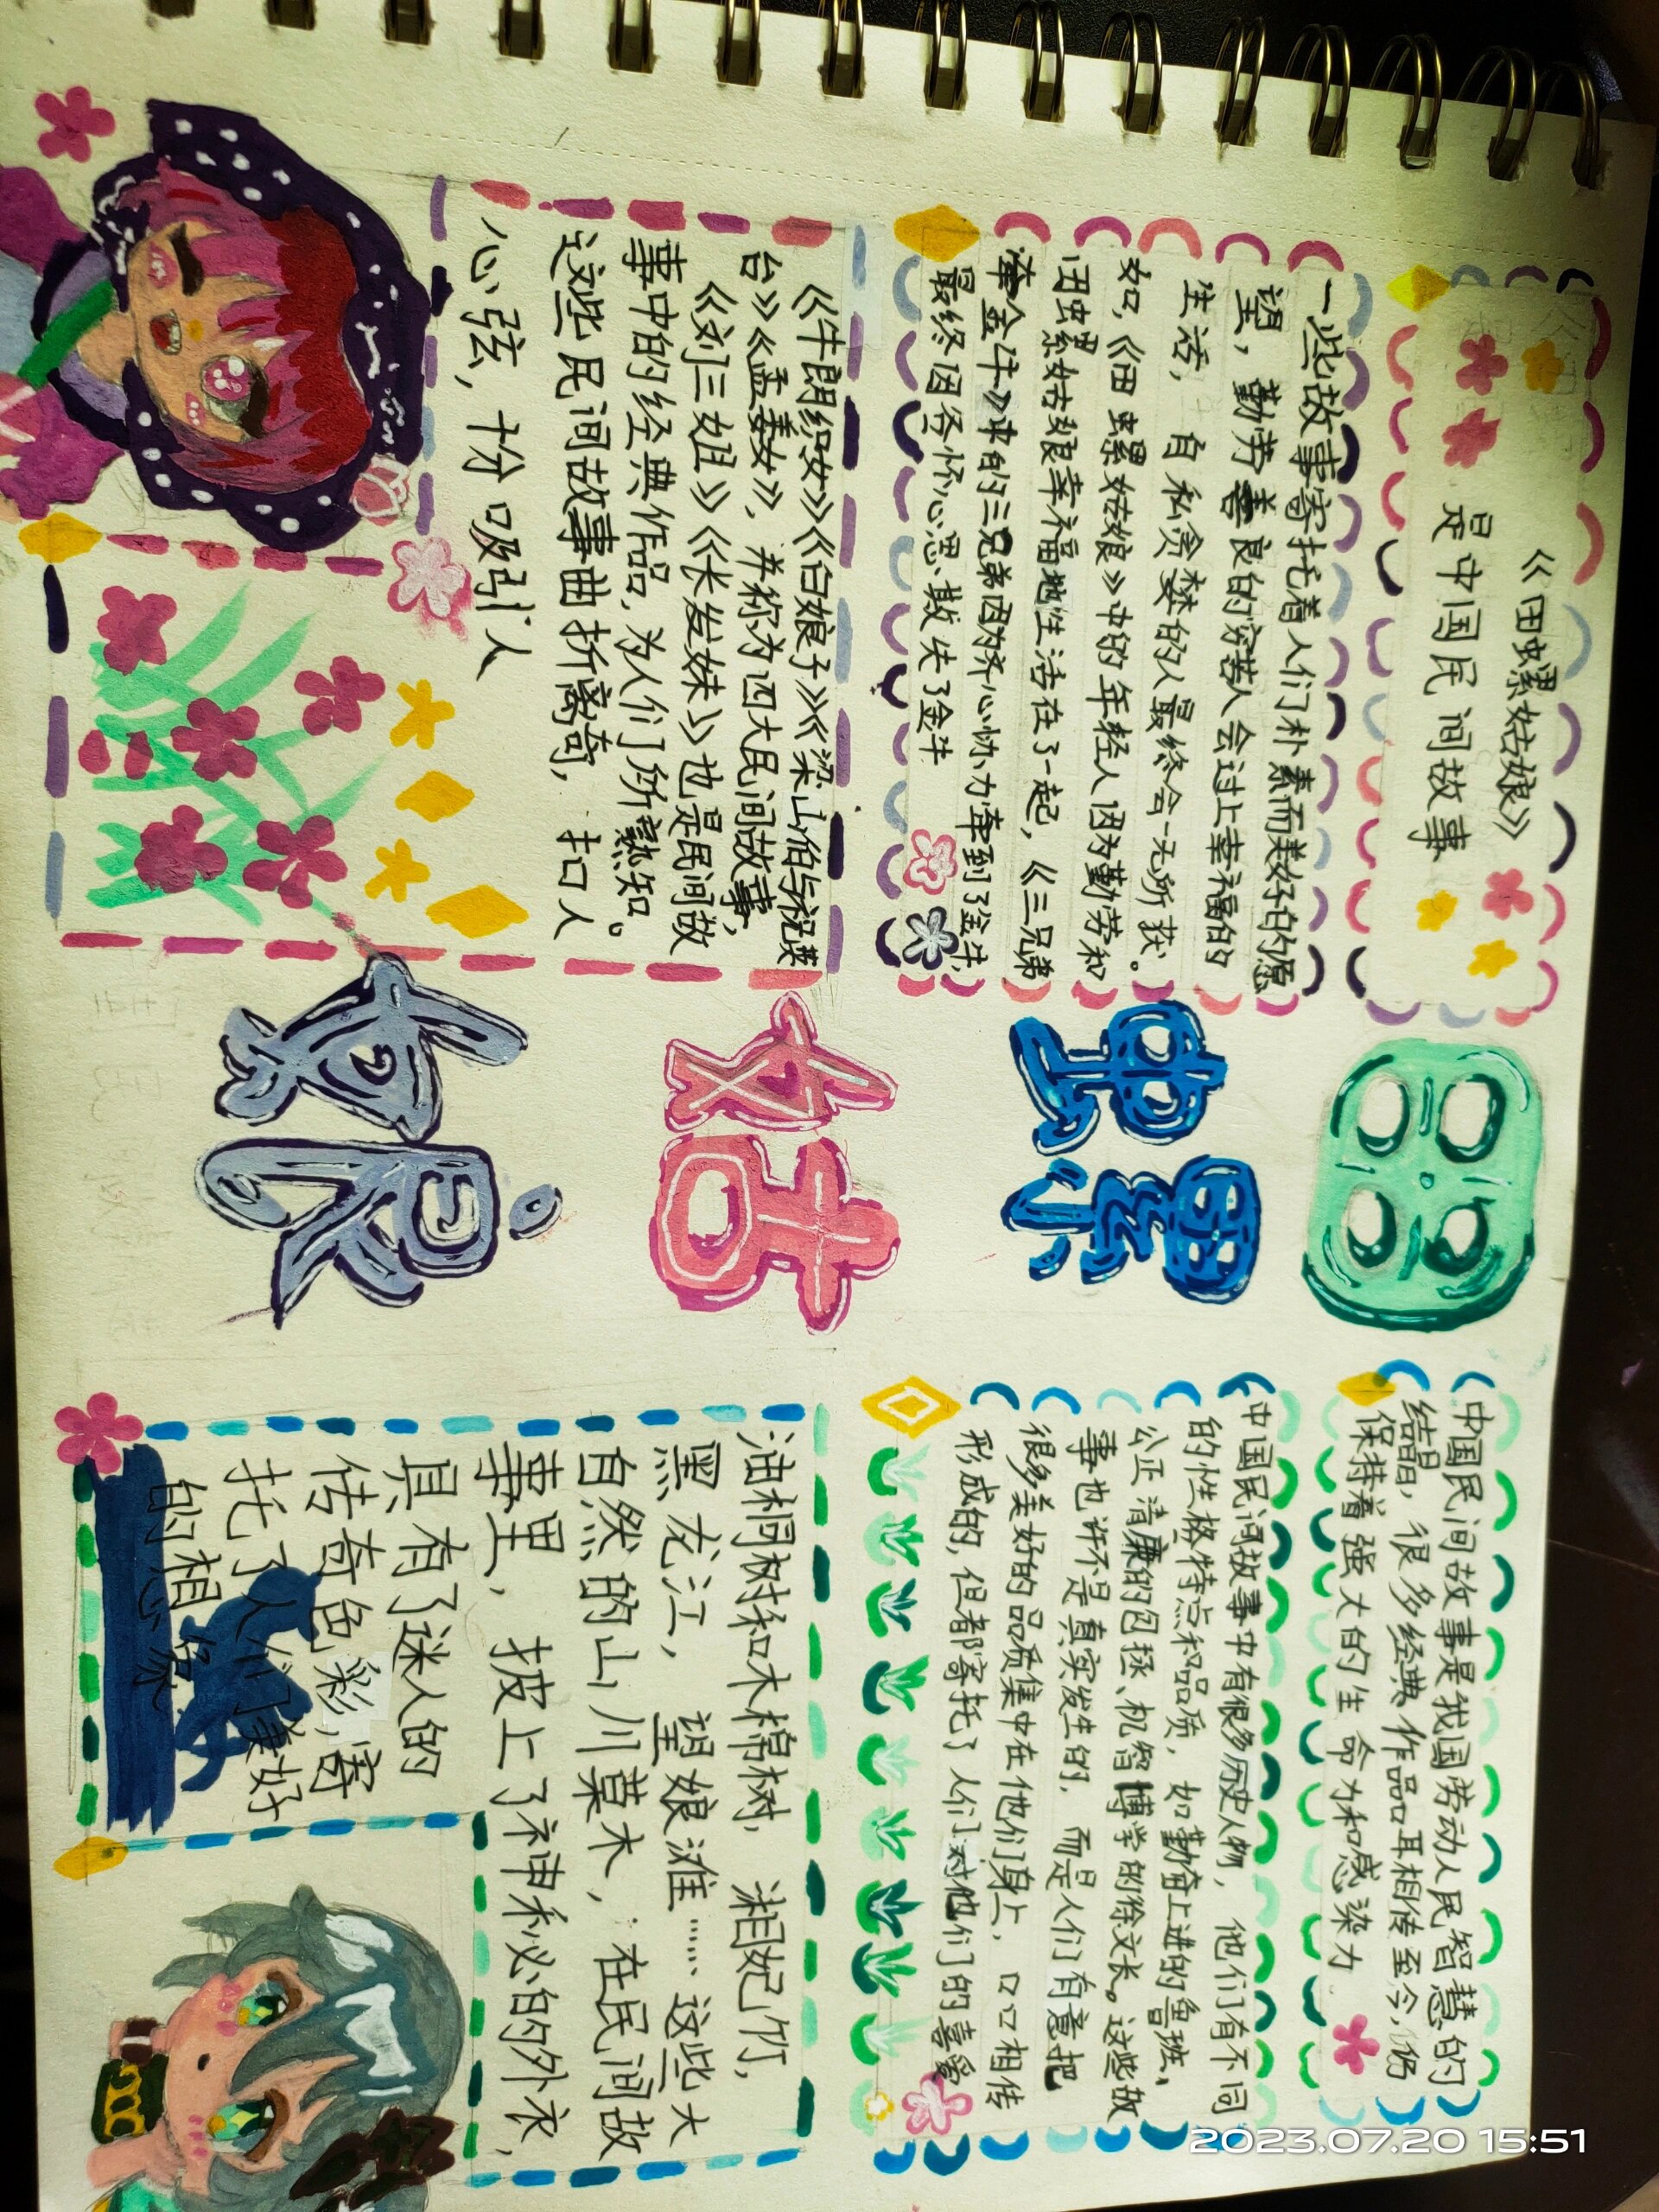 《田螺姑娘》
是中国民间故事
一些故事寄托着人们朴素而美好的愿
望，勤劳善良的穷苦人会过上幸福的
生活，自私贪婪的人最终会一无所获。
如，《田螺姑娘》中的年轻人因为勤劳和
田螺姑娘幸福地生活在了一起，《三兄弟
牵金牛》中的三兄弟因为齐心协力牵到了金牛，
最终因各怀心思欺失了金牛
《牛郎织女》《白娘子》《梁山伯与祝英
台》《孟姜女》，并称为四大民间故事，
《刘三姐》《长发妹》也是民间故
事中的经典作品，为人们所熟知。
这些民间故事曲折离奇，扣人
心弦，十分吸引人
田
螺
姑
娘
中国民间故事是我国劳动人民智慧的
结晶，很多经典作品口耳相传至今，仍
保持着强大的生命力和感染力
中国民间故事中有很多历史人物，他们有不同
的性格特点和品质，如勤奋上进的鲁班，
公正清廉的包拯、机智博学的徐文长。这些故
事也许不是真实发生的，而是人们有意把
很多美好的品质集中在他们身上，口口相传
形成的，但都寄托了人们对他们的喜爱
油桐树和木棉树，湘妃竹，
黑龙江，望娘滩……这些大
自然的山川草木，在民间故
事里，披上了神秘的外衣，
具有了迷人的
传奇色彩，寄
托了人们美好
的想象
2023.07.20 15:51